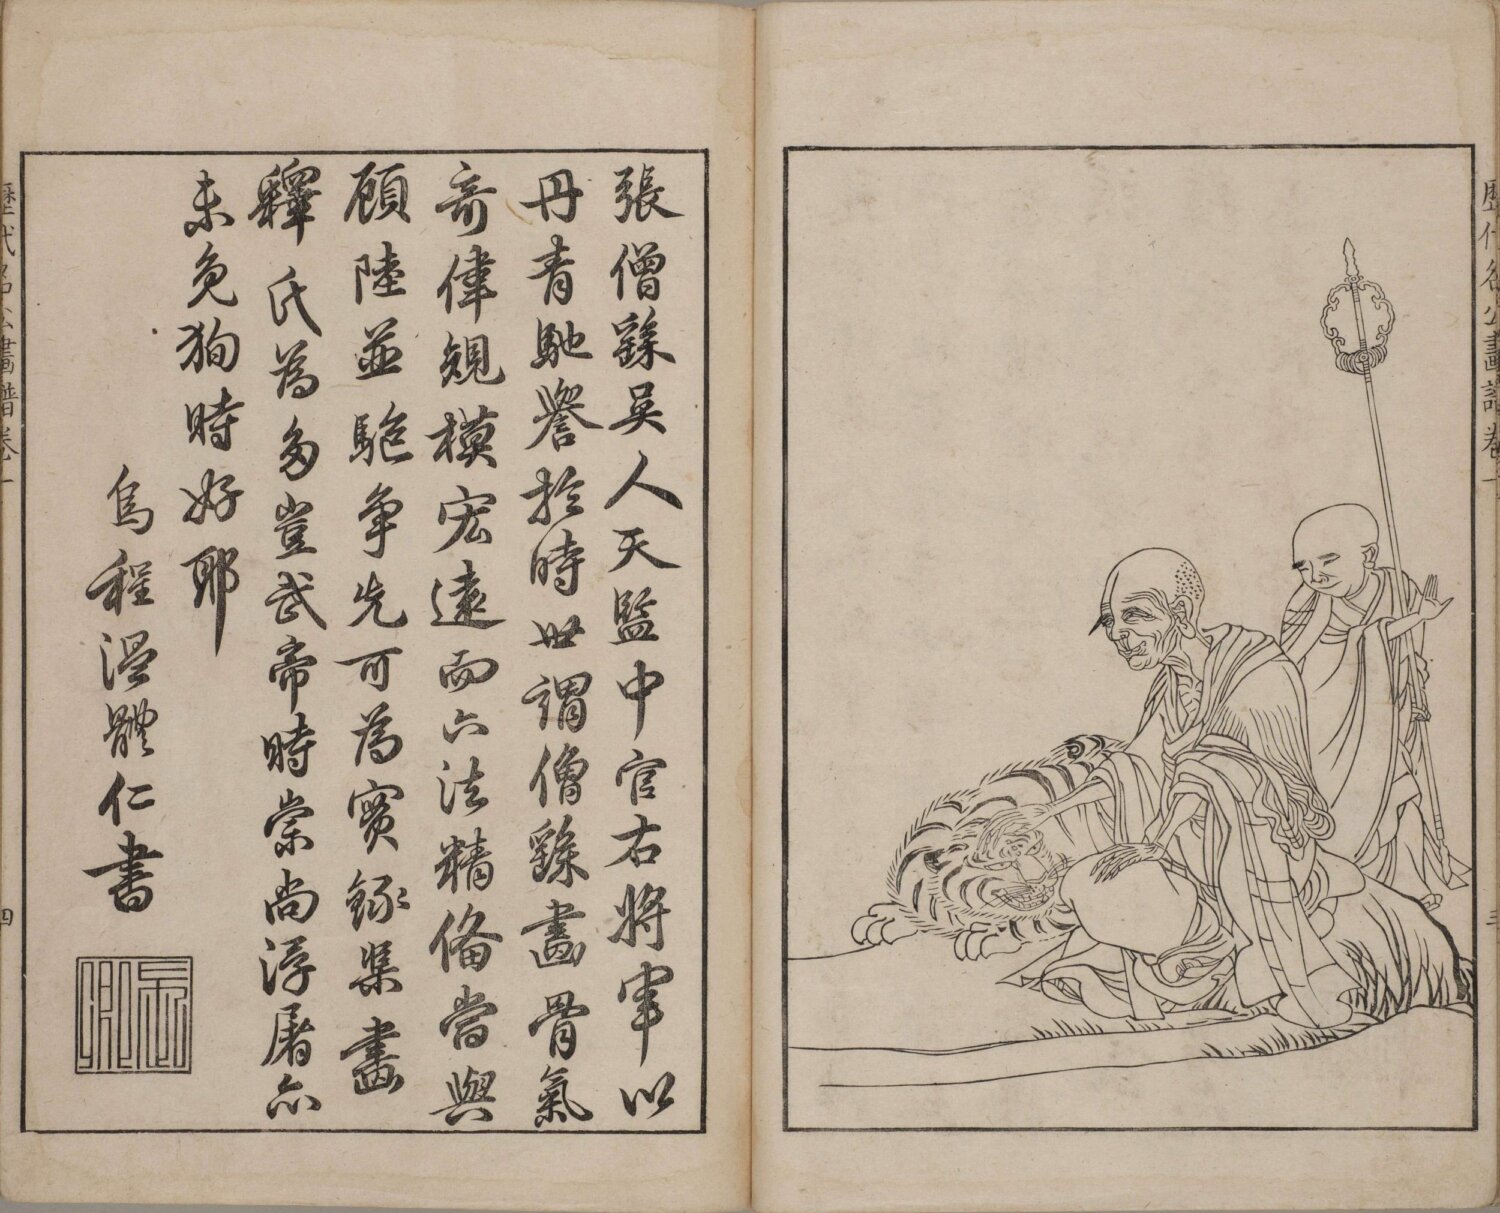 歷代名公畫譜卷一
三
張僧繇吳人天監中官右將軍以
丹青馳譽於時世謂僧繇畫骨氣
奇偉規模宏遠而六法精備當與
顧陸並馳爭先可為實錄渠畫
釋氏為多豈武帝時崇尚浮屠亦
未免狥時好耶
烏程溫體仁書
歷代名公畫譜卷一
四